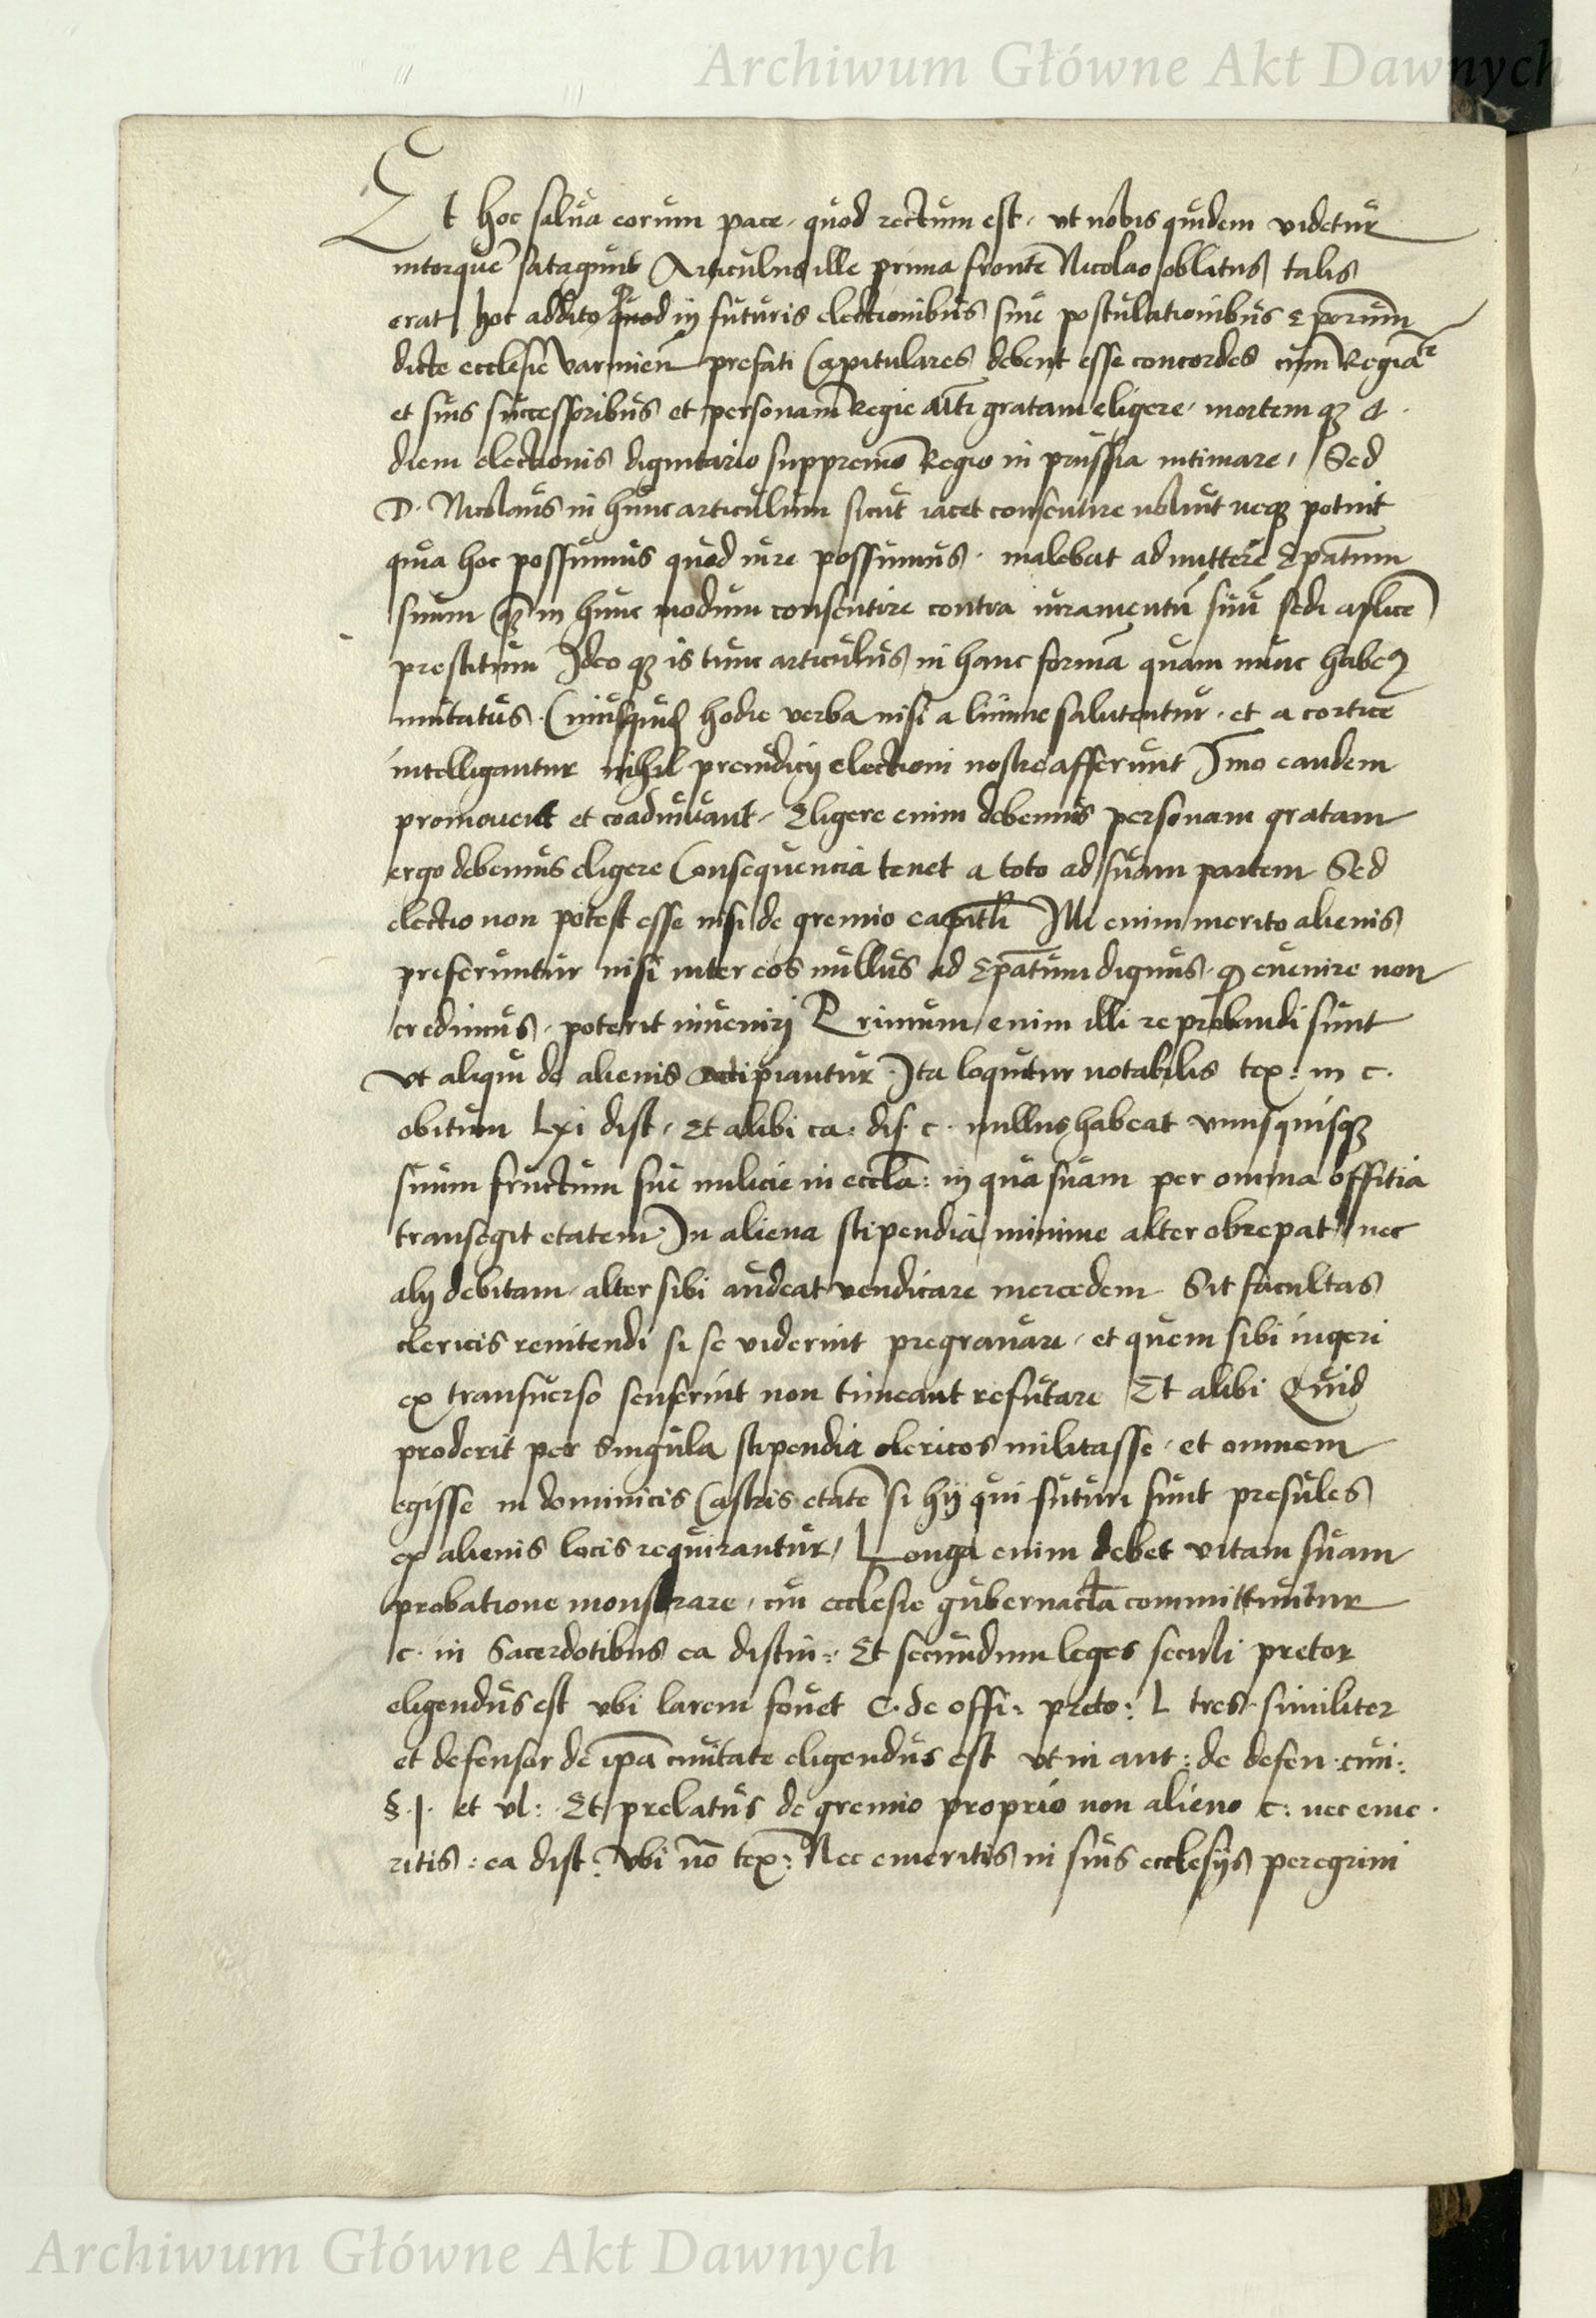 Archiwum Główne Akt Dawnych
Et hoc salua eorum pace, quod rectum est, vt nobis quidem videtur
intorquē satagunt Articulus ille prima frontē Nicolao oblatus talis
erat hoc addito quod in futuris electionibus siue postulationibus Eporum̄
dicte ecclesie Varmien̄ prefati Capitulares debent esse concordes cum Regia
et suis successoribus et personam Regie gratam eligere, mortem qʒ et
diem electionis dignitario suppremo Regio in prussia intimare, Sed
D. Nicolaus in hunc articulum sicut iacet consentire noluit neqʒ potuit
quia hoc possumus quod iure possumus. malebat admittere Epatum̄
suum qʒ in hunc modum consentire contra iuramentū suū sedi aplice
prestitum Ideo qʒ is tunc articulus in hanc formā quam nunc habeꝫ
mutatus. Cuiusquidē hodie verba nisi a limine salutentur, et a cortice
intelligantur nihil preiudicij electioni nostre afferunt Imo eandem
promouent et coadiuuant, Eligere enim debemus personam gratam
ergo debemus eligere Consequencia tenet a toto ad suam partem Sed
electio non potest esse nisi de gremio capitli Illi enim merito alienis
preferuntur nisi inter eos nullus ad Epatum̄ dignus, qđ euenire non
credimus, poterit inuenirj Primum enim illi reprobandi sunt
Vt aliqui de alienis accipiantur Ita loquitur notabilis tex: in c.
obitum lxi dist, Et alibi ea: dis. c. nullus habeat vnusquisqʒ
suum fructum sue milicie in eccla: in qua suam per omnia offitia
transegit etatem In aliena stipendia minime alter obrepat nec
alij debitam, alter sibi audeat vendicare mercedem Sit facultas
clericis renitendi si se viderint pregrauari, et quem sibi ingeri
ex transuerso senserint non timeant refutare Et alibi Quid
proderit per singula stipendia clericos militasse, et omnem
egisse in dominicis Castris etatē si hij qui futuri sunt presules
ex alienis locis requirantur, Longa enim debet vitam suam
probatione monstrare, cui ecclesie gubernacla committuntur
c. in Sacerdotibus ea distin: Et secundum leges seculi pretor
eligendus est vbi larem fouet C. de offi: preto: L tres, similiter
et defensor de ipa ciuitate eligendus est vt in aut: de defen. ciui:
§. j. et vl: Et prelatus de gremio proprio non alieno c: nec eme.
ritis: ea dist: Vbi tex: Nec emeritis in suis ecclesijs peregrini
Archiwum Główne Akt Dawnych